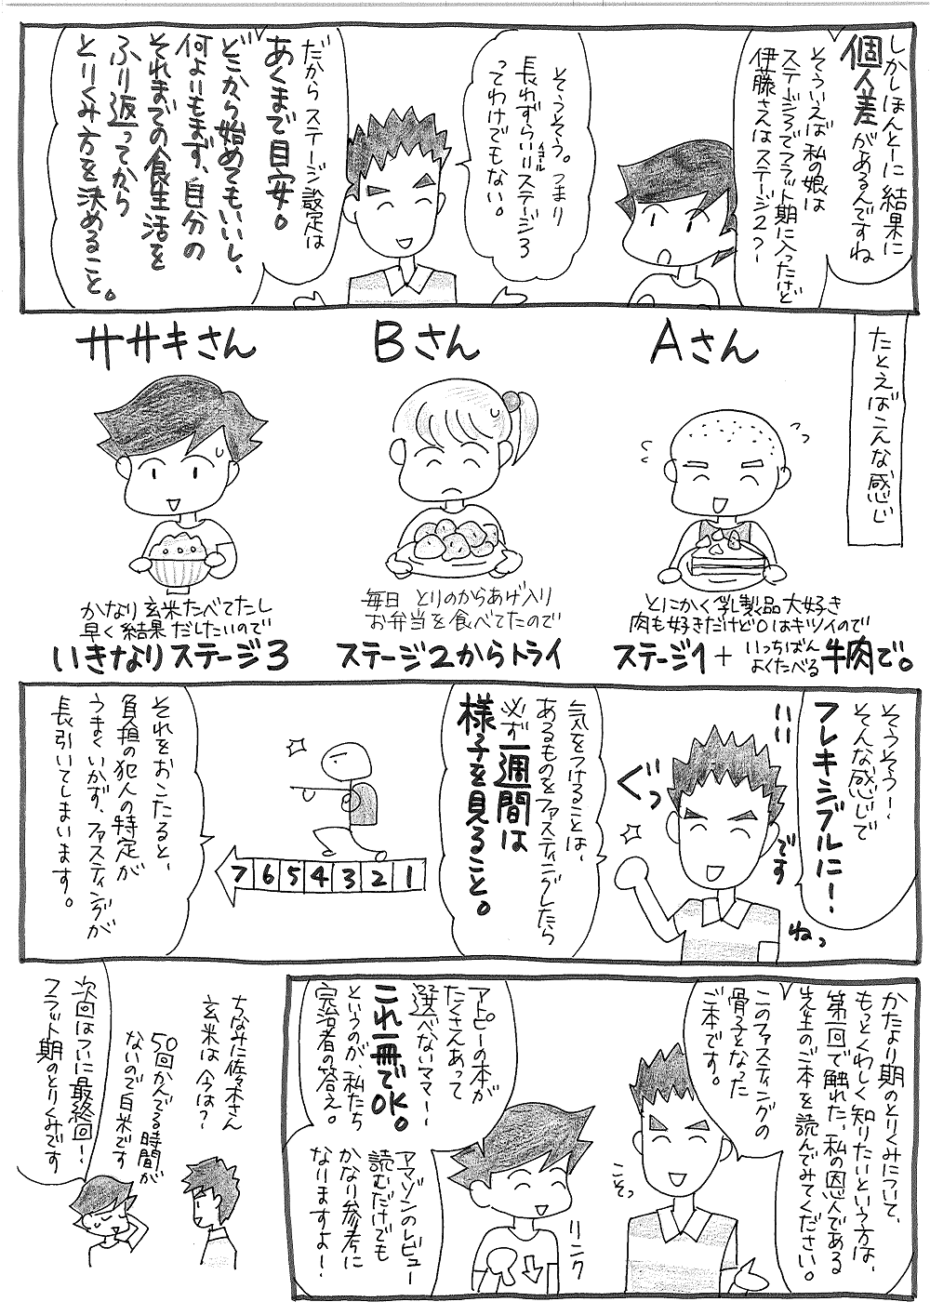 しかしほんとーに結果に
個人差があるんですね
そういえば私の娘は
ステージ3でフラット期に入ったけど
伊藤さんはステージ2?
そうそう。つまり
長わずらい=ステージ3
イコール
ってわけでもない。
だからステージ設定は
あくまで目安。
どこから始めてもいいし、
何よりもまず、自分の
それまでの食生活を
ふり返ってから
とりくみ方を決めること。
たとえばこんな感じ
Aさん
とにかく乳製品大好き
肉も好きだけど0はキツイので
ステージ1+いっちばん
よくたべる牛肉で。
Bさん
毎日とりのからあげ入り
お弁当を食べてたので
ステージ2からトライ
ササキさん
かなり玄米たべてたし
早く結果だしたいので
いきなりステージ3
そうそう!
そんな感じで
フレキシブルに!
いい
ぐっ
です
ねっ
気をつけることは、
あるものをファスティングしたら
必ず一週間は
様子を見ること。
7 6 5 4 3 2 1
それをおこたると、
負担の犯人の特定が
うまくいかず、ファスティングが
長引いてしまいます。
かたより期のとりくみについて、
もっとくわしく知りたいという方は、
第一回で触れた、私の恩人である
先生のご本を読んでみてください。
このファスティングの
骨子となった
ご本です。
こそっ
アトピーの本が
たくさんあって
選べないママ!
これ一冊でOK。
というのが、私たち
完治者の答え。
アマゾンのレビュー
読むだけでも
かなり参考に
なりますよ!
リンク
ちなみに佐々木さん
玄米は今は?
50回かんでる時間が
ないので白米です
次回はついに最終回!
フラット期のとりくみです